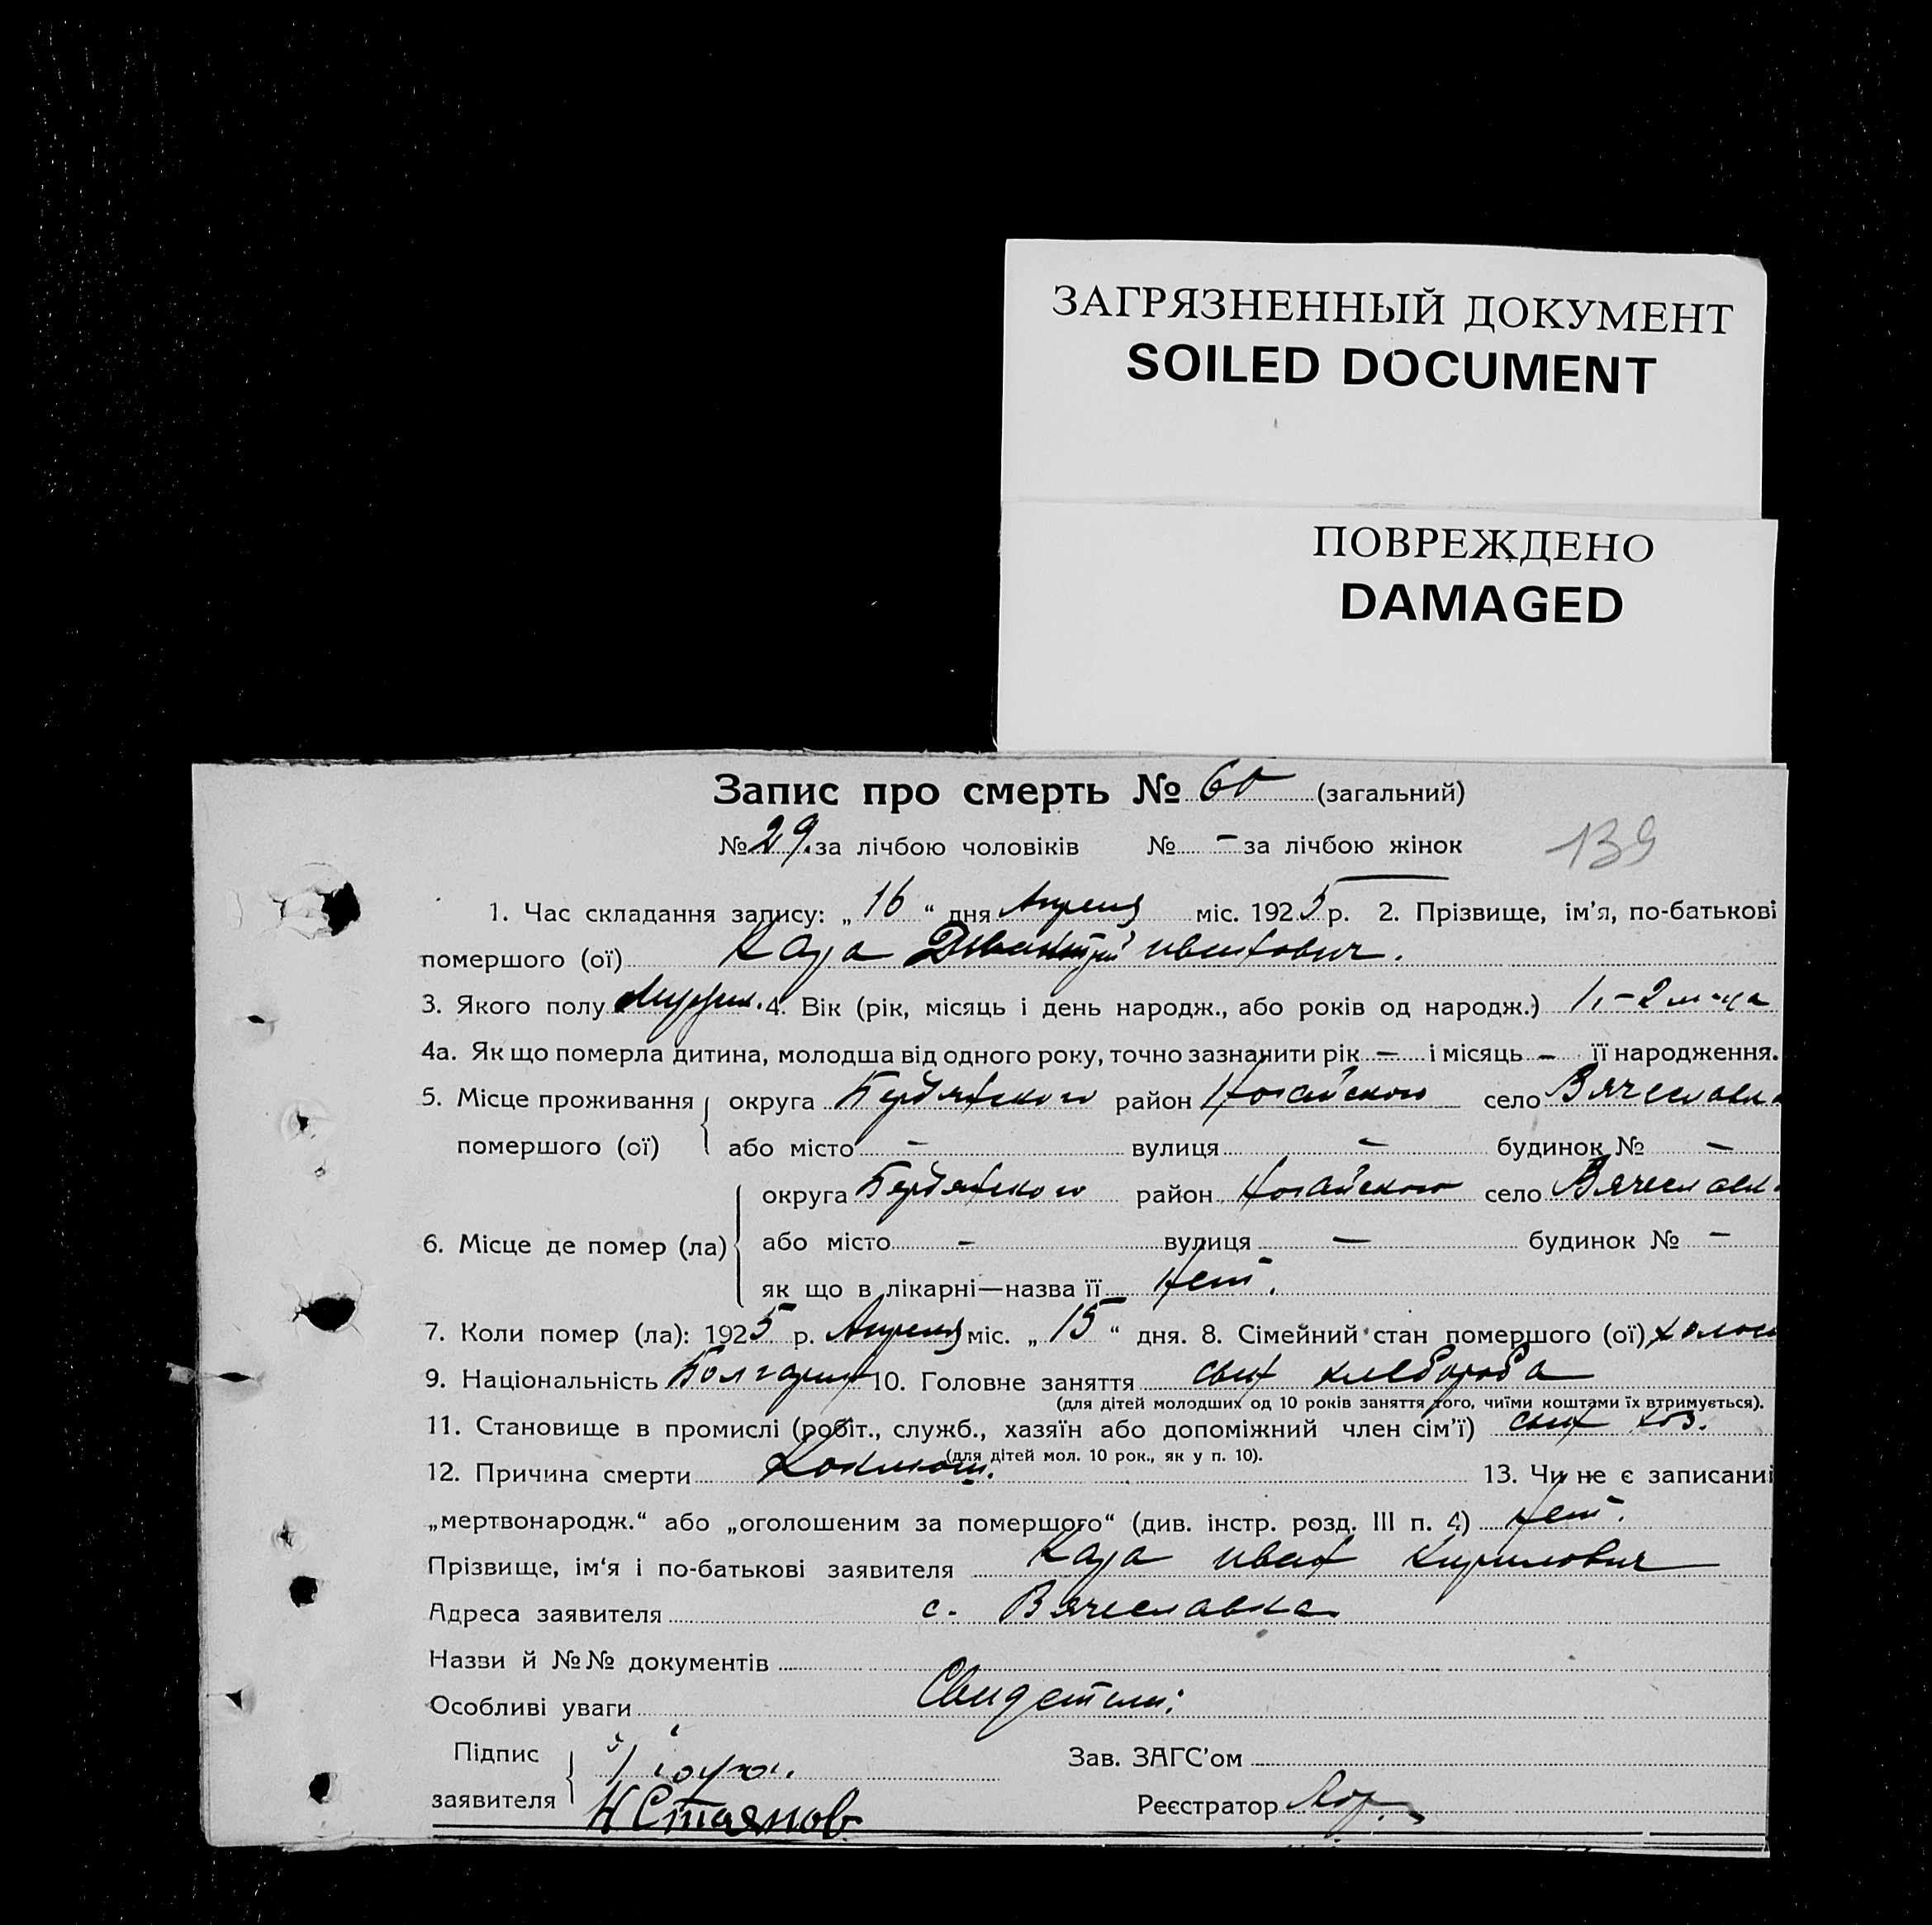 ЗАГРЯЗНЕННЫЙ ДОКУМЕНТ
SOILED DOCUMENT
ПОВРЕЖДЕНО
DAMAGED
Запис про смерть № 60 (загальний)
№ 29. за лічбою чоловіків № – за лічбою жінок
139
1. Час складання запису: „ 16 “ дня Апреля міс. 1925 р. 2. Прізвище, ім’я, по-батькові
помершого (ої) Кара Ивантович.
3. Якого полу Мужск. 4. Вік (рік, місяць і день народж., або років од народж.) 1,-2 м-ца
4а. Як що померла дитина, молодша від одного року, точно зазначити рік – і місяць – її народження.
5. Місце проживання округа Бердянского район Ногайского село Вячеславк
помершого (ої) або місто – вулиця – будинок № –
округа Бердянского район Ногайского село Вячеславк
6. Місце де помер (ла) або місто – вулиця – будинок № –
як що в лікарні—назва її Нет.
7. Коли помер (ла): 1925 р. Апреля міс. „ 15 “ дня. 8. Сімейний стан помершого (ої) холост
9. Національність Болгарин 10. Головне заняття сын хлебороба
(для дітей молодших од 10 років заняття того, чиїми коштами їх втримується).
11. Становище в промислі (робіт., служб., хазяїн або допоміжний член сім’ї) сын хоз.
(для дітей мол. 10 рок., як у п. 10).
12. Причина смерти Коклюш. 13. Чи не є записани
„мертвонародж.“ або „оголошеним за помершого“ (див. інстр. розд. III п. 4) Нет.
Прізвище, ім‘я і по-батькові заявителя Кара Иван Кирилович
Адреса заявителя с. Вячеславка
Назви й №№ документів
Особливі уваги Свидетели:
Підпис
заявителя Н Стоянов
Зав. ЗАГС’ом
Реєстратор